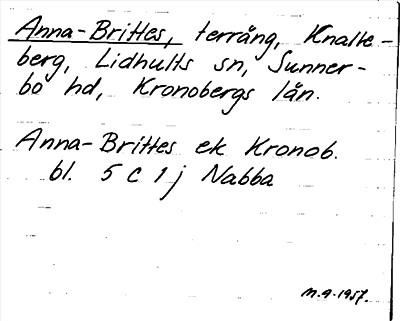 Anna-Brittes, terräng, Knalle-
berg, Lidhults sn, Sunner-
bo hd, Kronobergs län.
Anna-Brittes ek Kronob.
bl. 5 C 1 j Nabba
M.A. 1957.